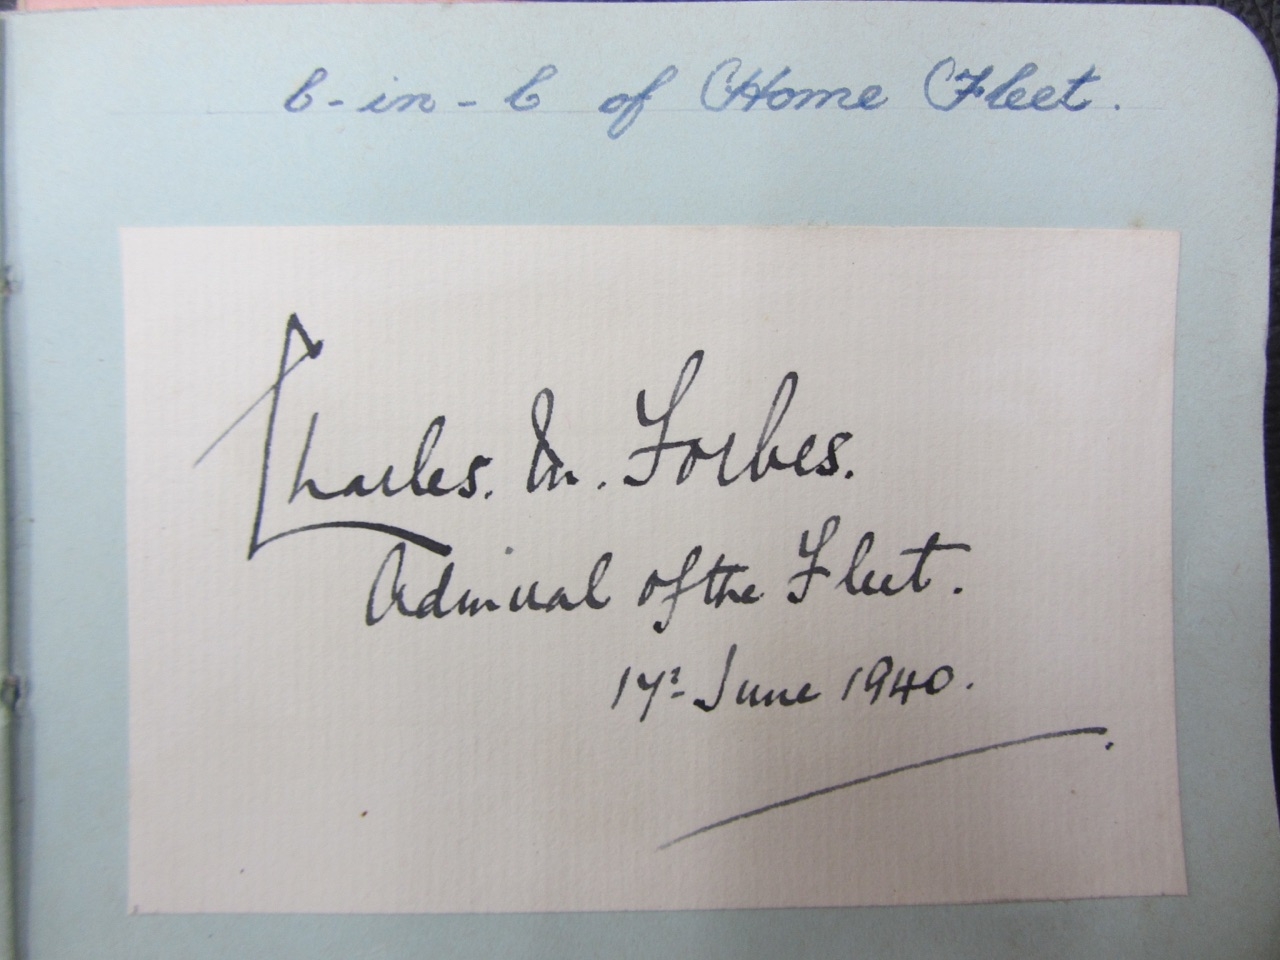 C-in-C of Home Fleet.
Charles. M. Forbes.
Admiral of the Fleet.
17th June 1940.